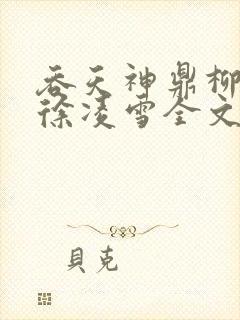 吞天神鼎柳
徐凌雪全文
貝克